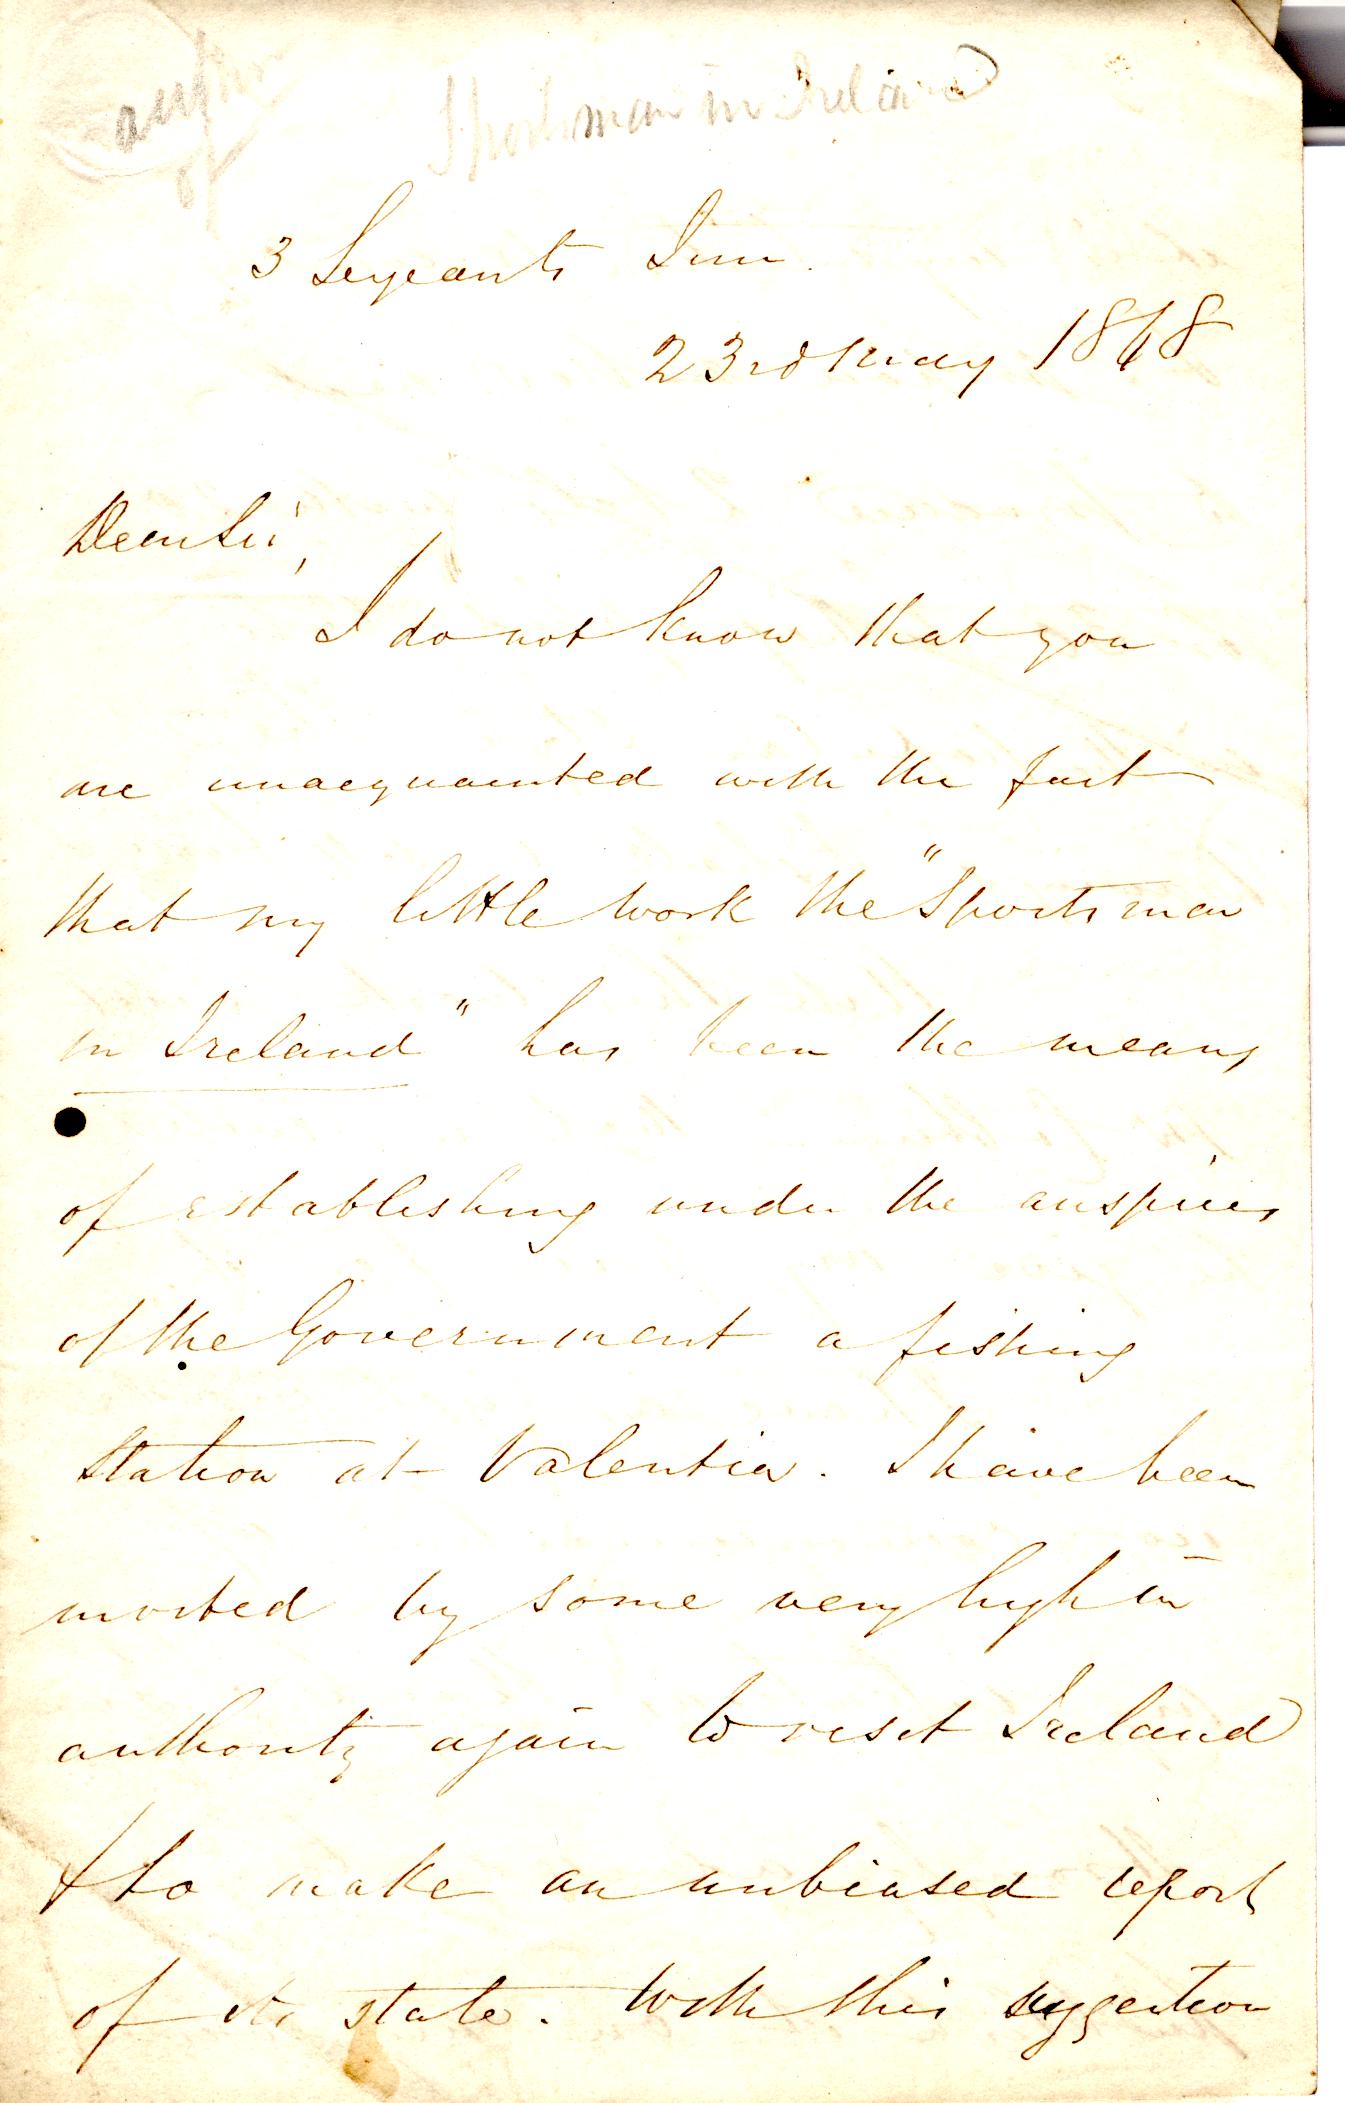 author of
Sportsman in Ireland
3 Serjeants Inn.
23rd May 1848
Dear Sir,
I do not know that you
are unacquainted with the fact
that my little work the "Sportsman
in Ireland" has been the means
of establishing under the auspices
of the Government a fishing
station at Valentia. I have been
invited by some very high in
authority again to visit Ireland
& to make an unbiased report
of its state. With this suggestion